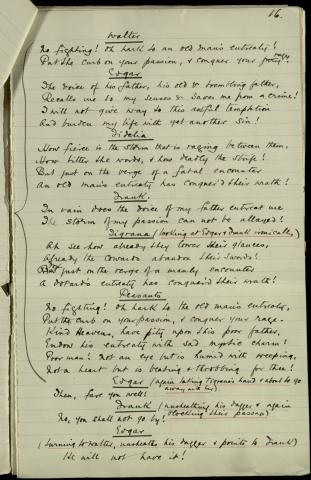 16.
Walter
No fighting! Oh hark to an old man's entreaty!
Put the curb on your passion, & conquer your fury! rage
Edgar
The voice of his father, his old & trembling father,
Recalls me to my senses & saves me from a crime!
I will not give way to this awful temptation
And burden my life with yet another Sin!
Fidelia
How fierce is the storm that is raging between them,
How bitter the words, & how deadly the strife!
But just on the verge of a fatal encounter
An old man's entreaty has conquer'd their wrath!
Frank.
In vain does the voice of my father entreat me
The storm of my passion can not be allayed!
Tigrana (looking at Edgar & Frank ironically,)
Ah see how already they lower their glances,
Already the cowards abandon their swords!
But just on the verge of a manly encounter
A dotard's entreaty has conquer'd their wrath!
Peasants
No fighting! Oh hark to the old man's entreaty,
Put the curb on your passion, & conquer your rage.
Kind Heavens, have pity upon this poor father,
Endow his entreaty with sad mystic charm!
Poor man! Not an eye but is humid with weeping,
Not a heart but is beating & throbbing for thee!
Edgar (again taking Tigrana's hand & about to go
away with her)
Then, fare you well!
Frank (unsheathing his dagger & again
blocking their passage)
No, you shall not go by!
Edgar
(turning to Walter, unsheathes his dagger & points to Frank)
He will not have it!